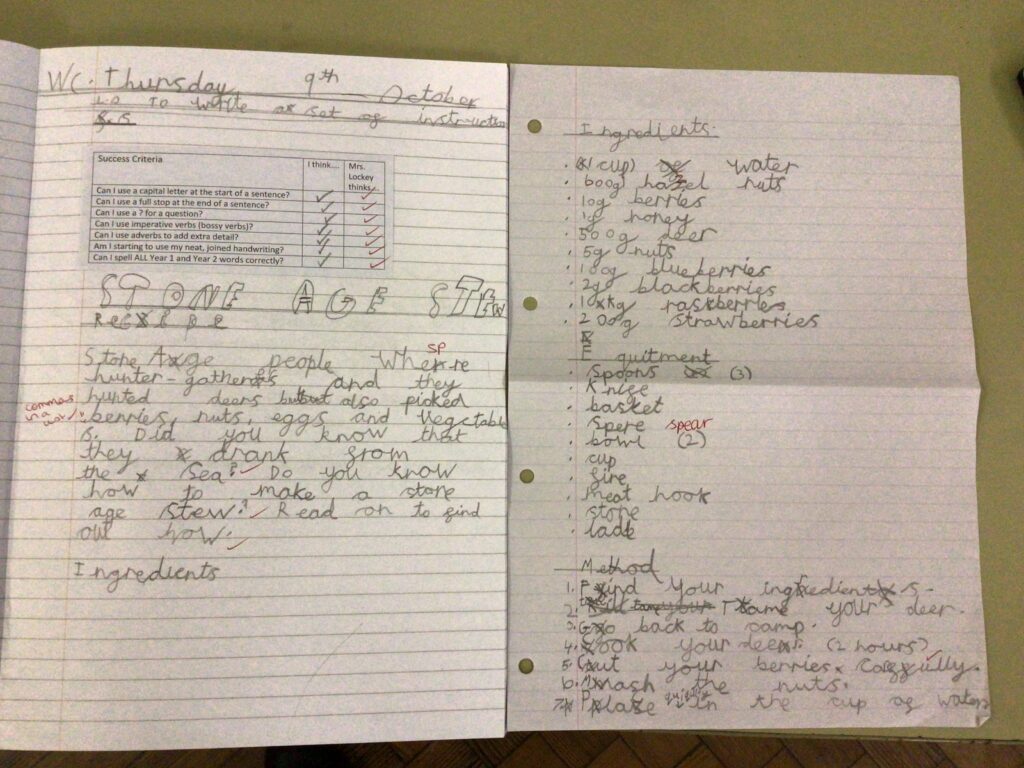 WC. Thursday 9th October
L.O To write a set of instructions
Success Criteria
I think....
Mrs. Lockey thinks...
Can I use a capital letter at the start of a sentence?
Can I use a full stop at the end of a sentence?
Can I use a ? for a question?
Can I use imperative verbs (bossy verbs)?
Can I use adverbs to add extra detail?
Am I starting to use my neat, joined handwriting?
Can I spell ALL Year 1 and Year 2 words correctly?
STONE AGE STEW
Recipe
sp
Stone Age people where
hunter-gatherers and they
hunted deers but also picked
commas in a list
berries, nuts, eggs and vegetable
s. Did you know that
they drank from
the sea? Do you know
how to make a stone
age stew? Read on to find
out how.
Ingredients
Ingredients.
(1 cup) water
600g hazel nuts
10g berries
1g honey
500g deer
5g nuts
100g blueberries
2g blackberries
10kg raskberries
200g strawberries
Equitment
Spoons (3)
Knife
basket
Spere spear
bowl (2)
cup
fire
meat hook
stone
Method
1. Find your ingredients.
2. Tame your deer.
3. Go back to camp.
4. Cook your deer. (2 hours)
5. Cut your berries carefully.
6. Mash the nuts.
7. Place quickly in the cup of water